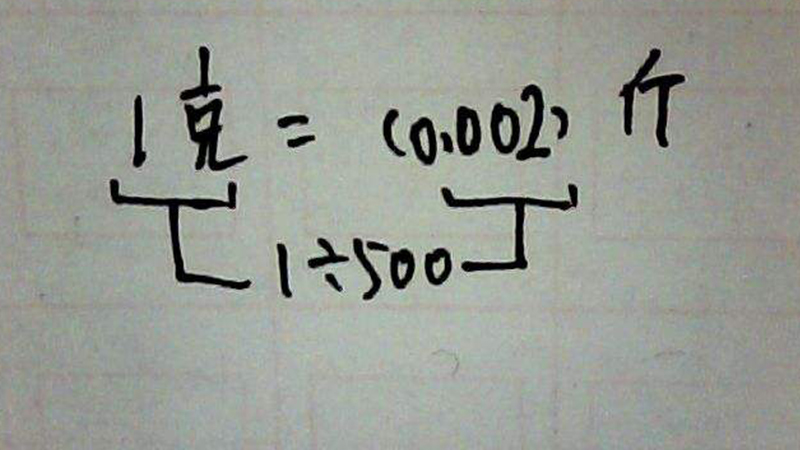 1克 = (0.002) 斤
1÷500